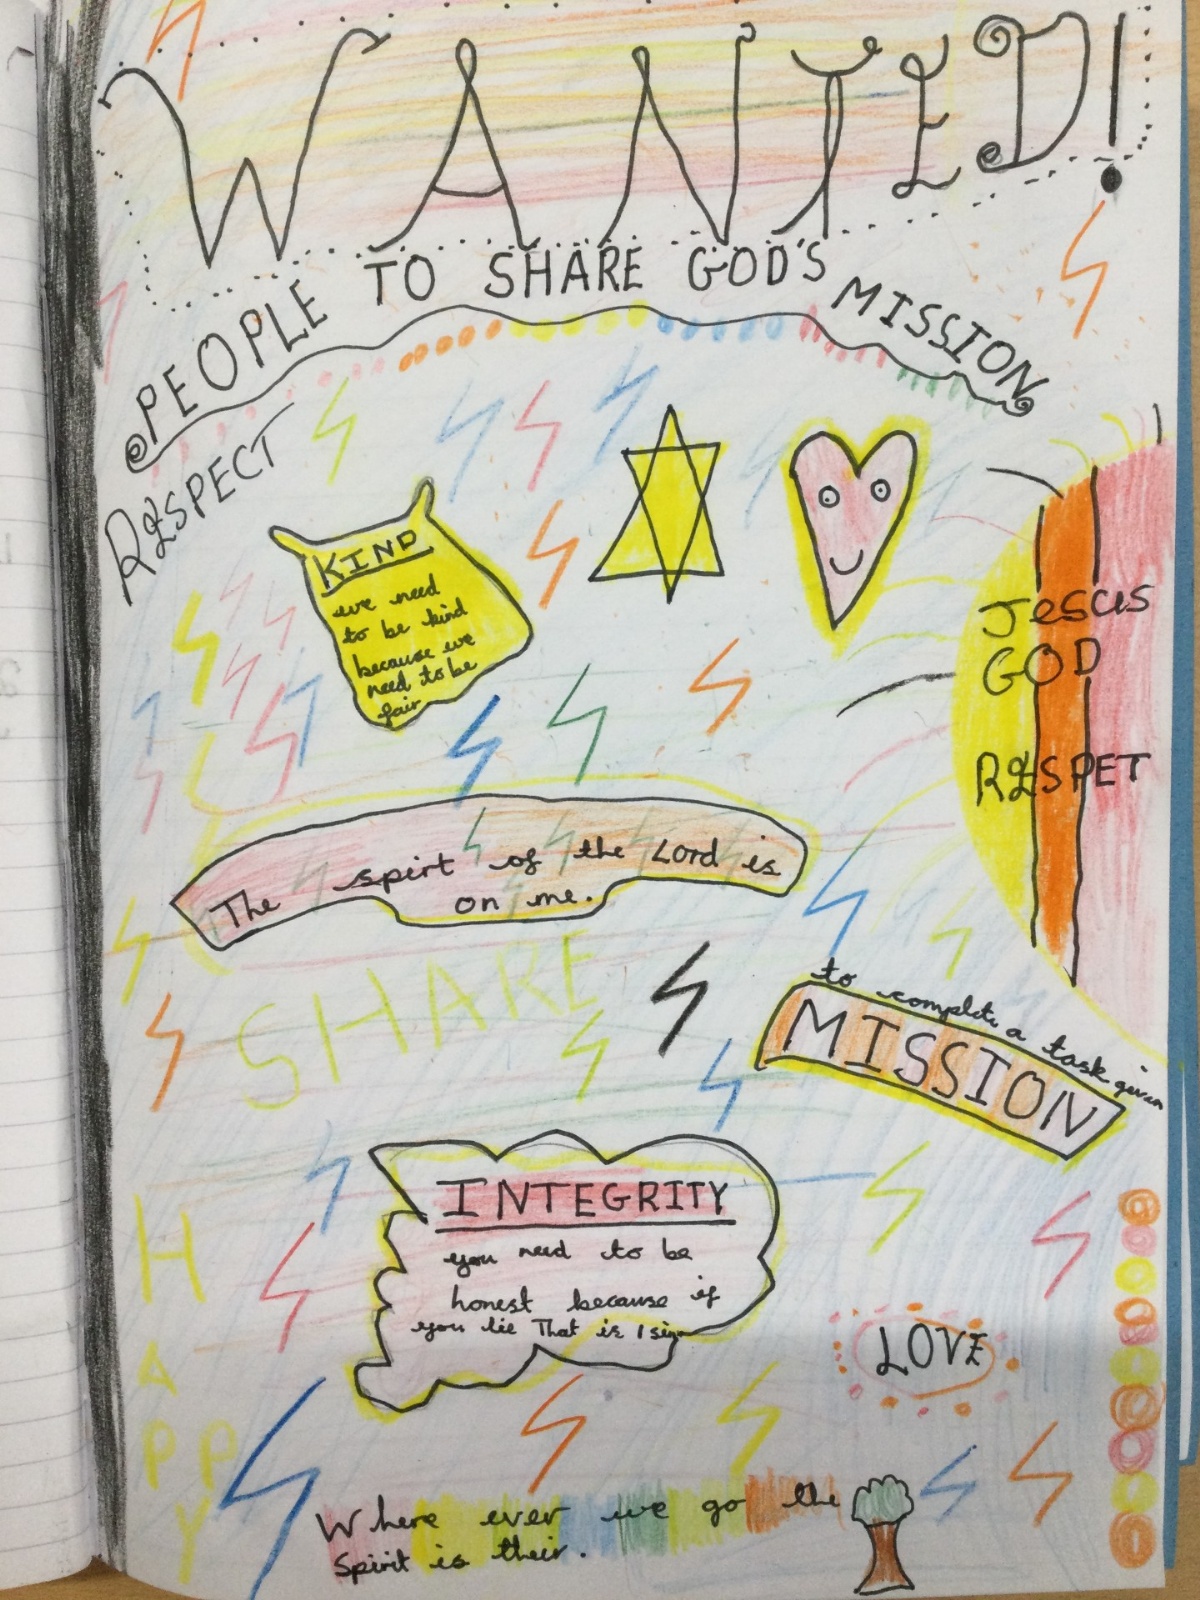 WANTED!
PEOPLE TO SHARE GOD'S MISSION
RESPECT
KIND
we need
to be kind
because we
need to be
fair
JESCUS
GOD
RESPET
The spirt of the Lord is
on me.
SHARE
to complete a task given
MISSION
INTEGRITY
you need to be
honest because if
you lie That is 1 sin
HAPPY
LOVE
Where ever we go the
Spirit is their.